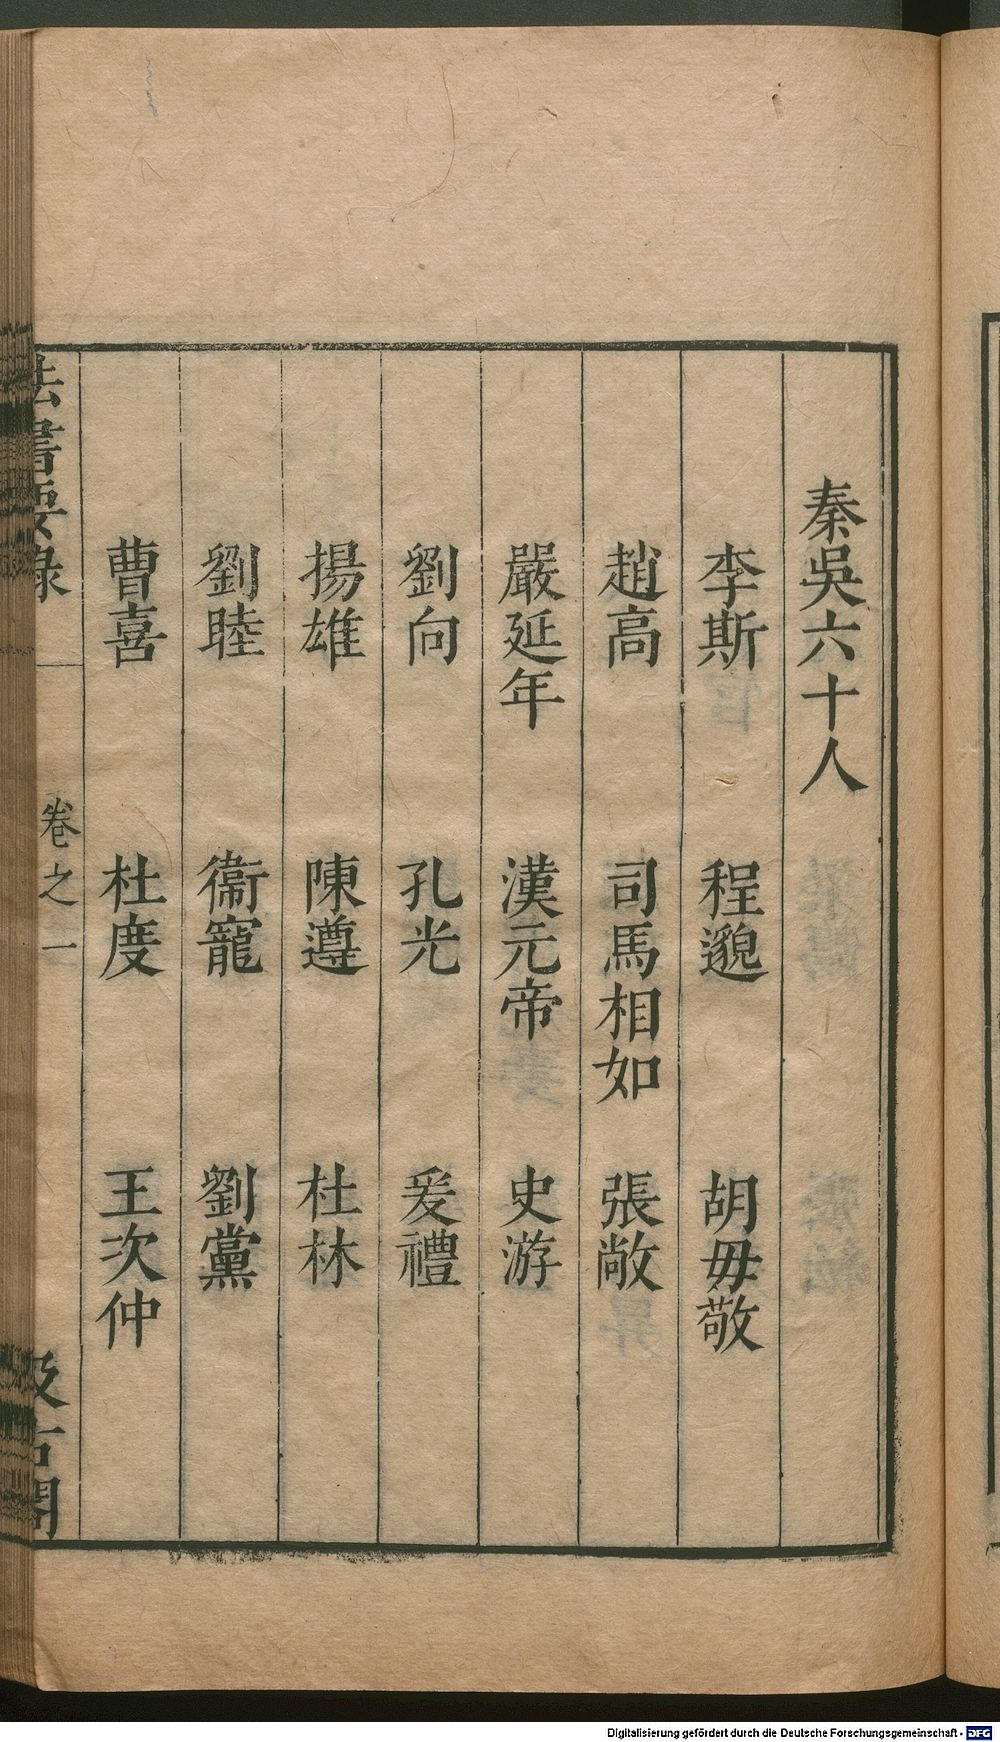 秦吳六十人
李斯 程邈 胡毋敬
趙高 司馬相如 張敞
嚴延年 漢元帝 史游
劉向 孔光 爰禮
揚雄 陳遵 杜林
劉睦 衞寵 劉黨
曹喜 杜度 王次仲
法書要錄 卷之一 汲古閣
Digitalisierung gefördert durch die Deutsche Forschungsgemeinschaft - DFG